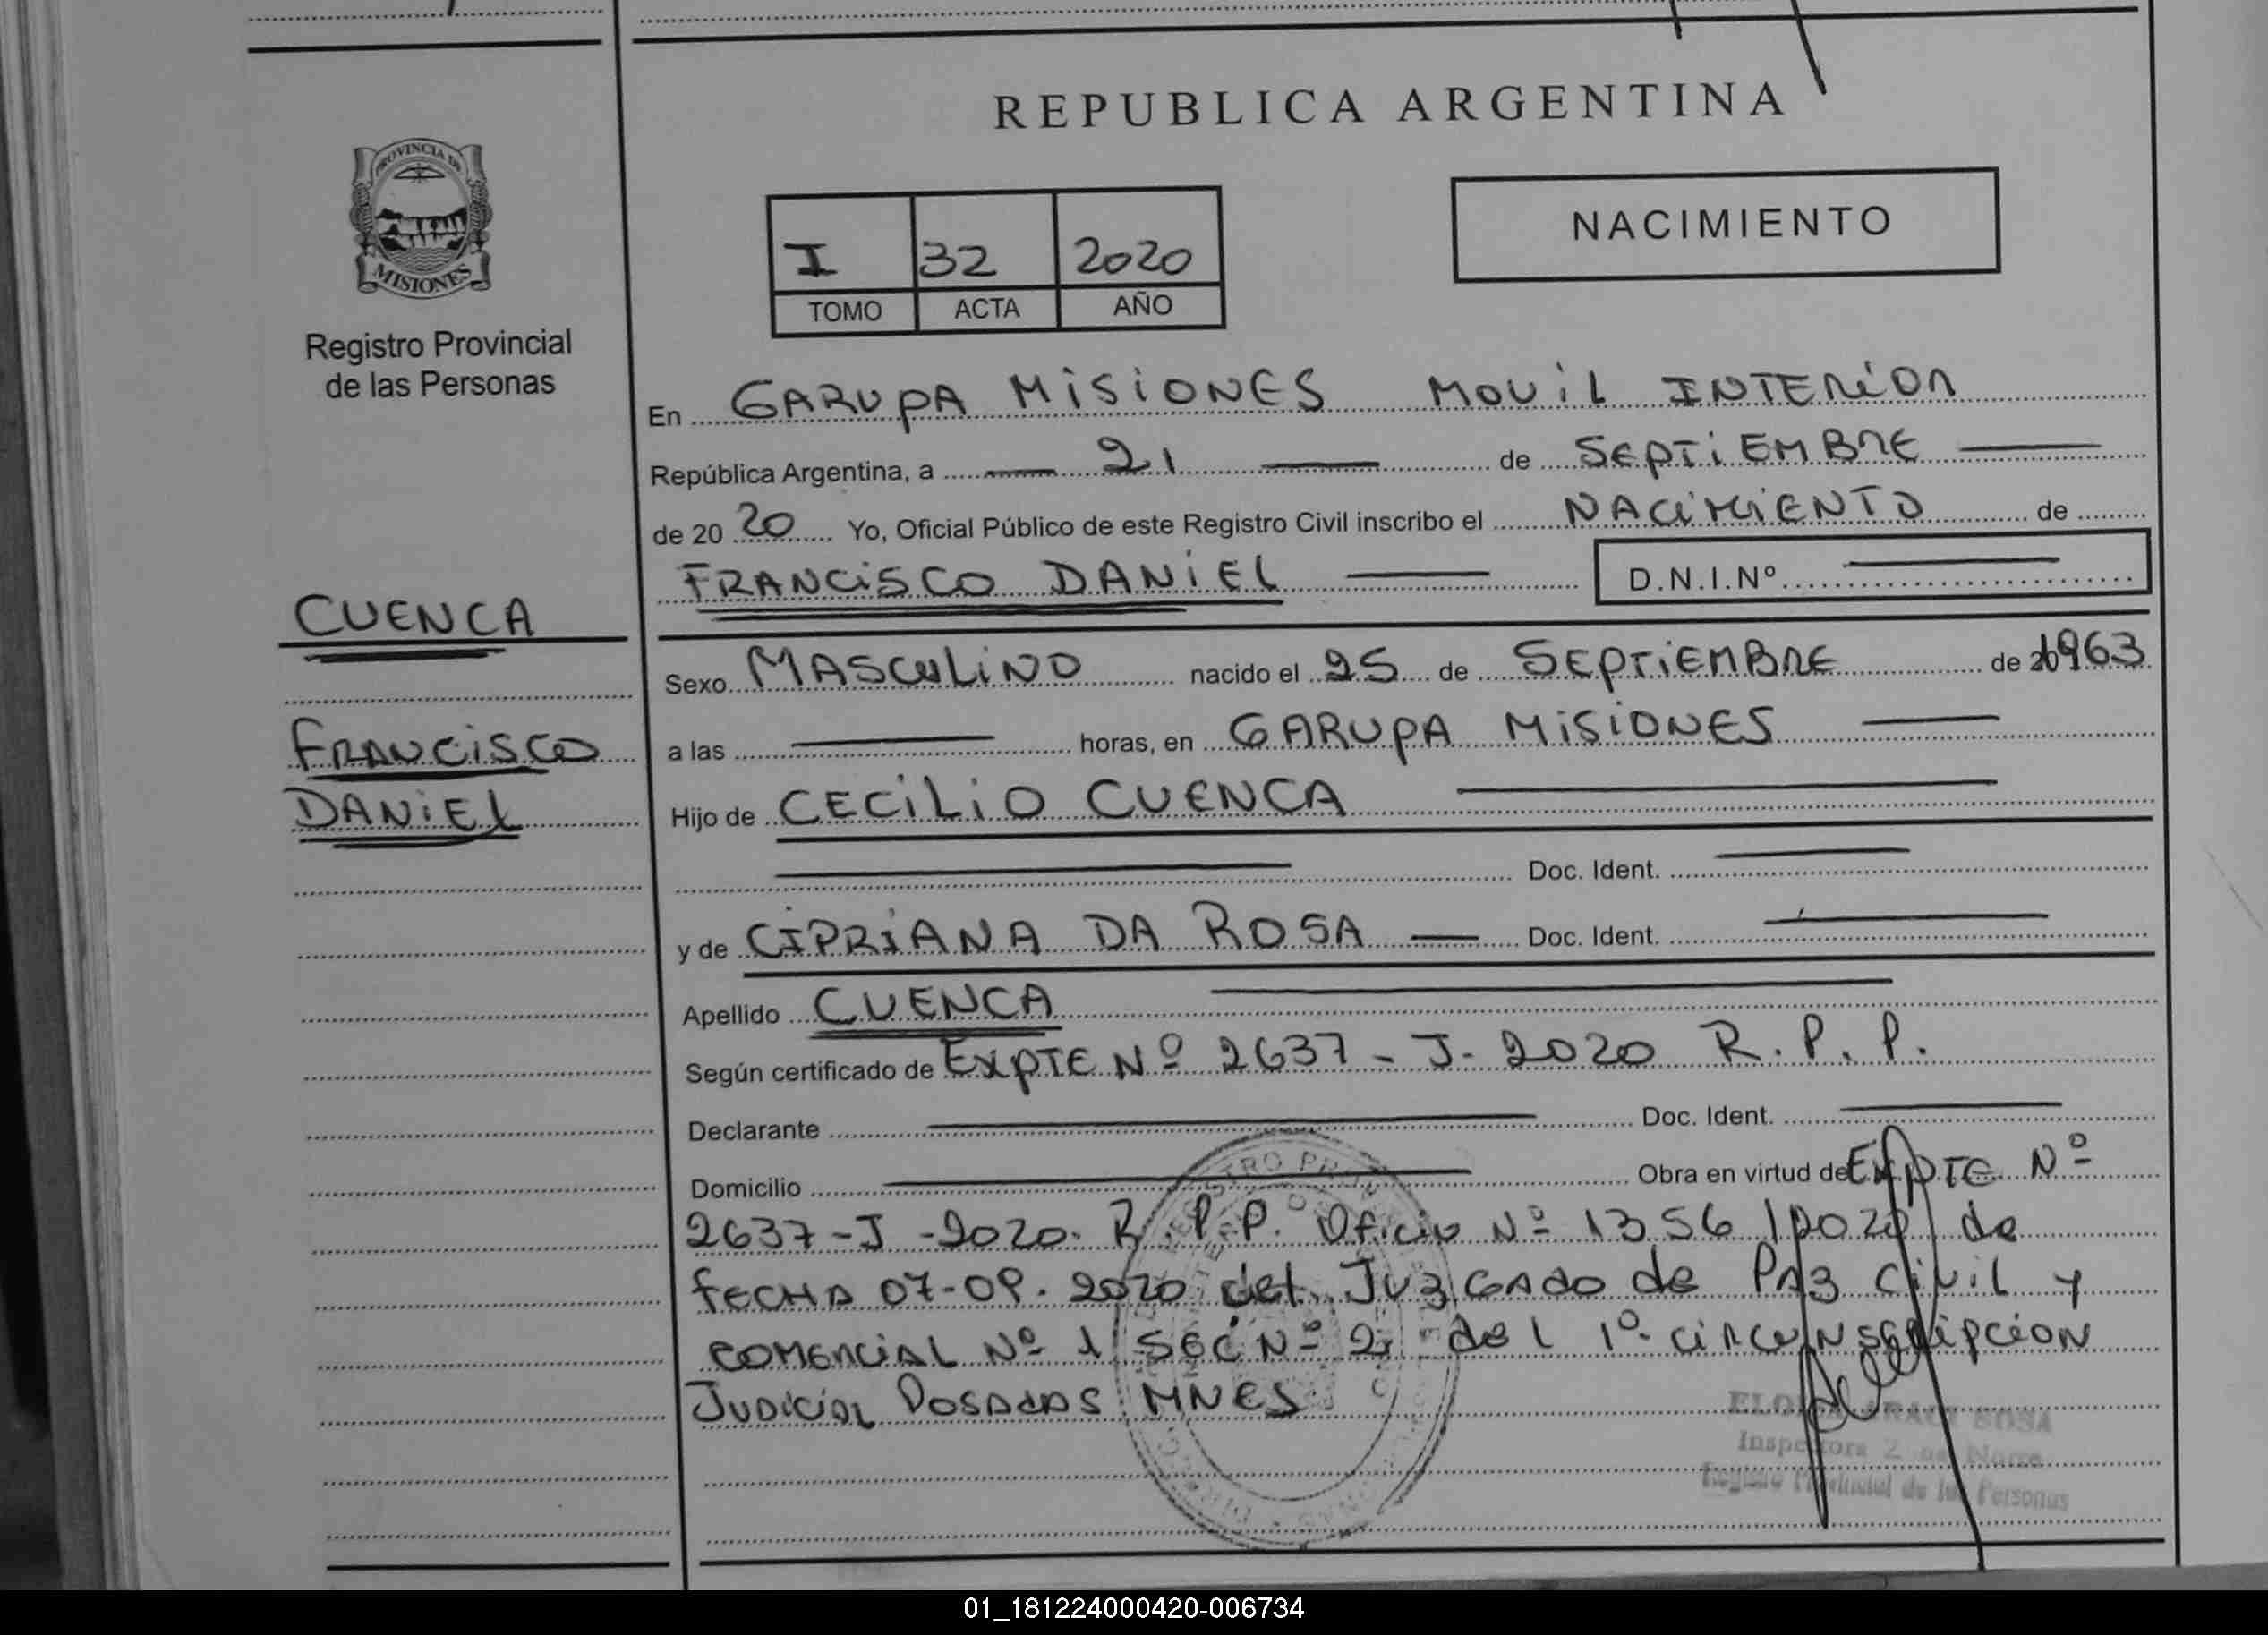 REPUBLICA ARGENTINA
PROVINCIA DE
MISIONES
Registro Provincial
de las Personas
I 32 2020
TOMO ACTA AÑO
NACIMIENTO
En GARUPA MISIONES MOVIL INTERIOR
República Argentina, a 21 de SEPTIEMBRE
de 20 20 Yo, Oficial Público de este Registro Civil inscribo el NACIMIENTO de
FRANCISCO DANIEL D.N.I.Nº
CUENCA
FRANCISCO
DANIEL
Sexo MASCULINO nacido el 25 de SEPTIEMBRE de 1963
a las horas, en GARUPA MISIONES
Hijo de CECILIO CUENCA
Doc. Ident.
y de CIPRIANA DA ROSA Doc. Ident.
Apellido CUENCA
Según certificado de EXPTE Nº 2637-J-2020 R.P.P.
Declarante Doc. Ident.
Domicilio Obra en virtud de EXPTE Nº
2637-J-2020. R.P.P. Oficio Nº 1356/2020 de
FECHA 07-09-2020 del JUZGADO de PAZ Civil y
COMERCIAL Nº 1 SEC Nº 2, de l 1º CIRCUNSCRIPCION
JUDICIAL POSADAS MNES
SOSA
Registro Provincial de las Personas
01_181224000420-006734